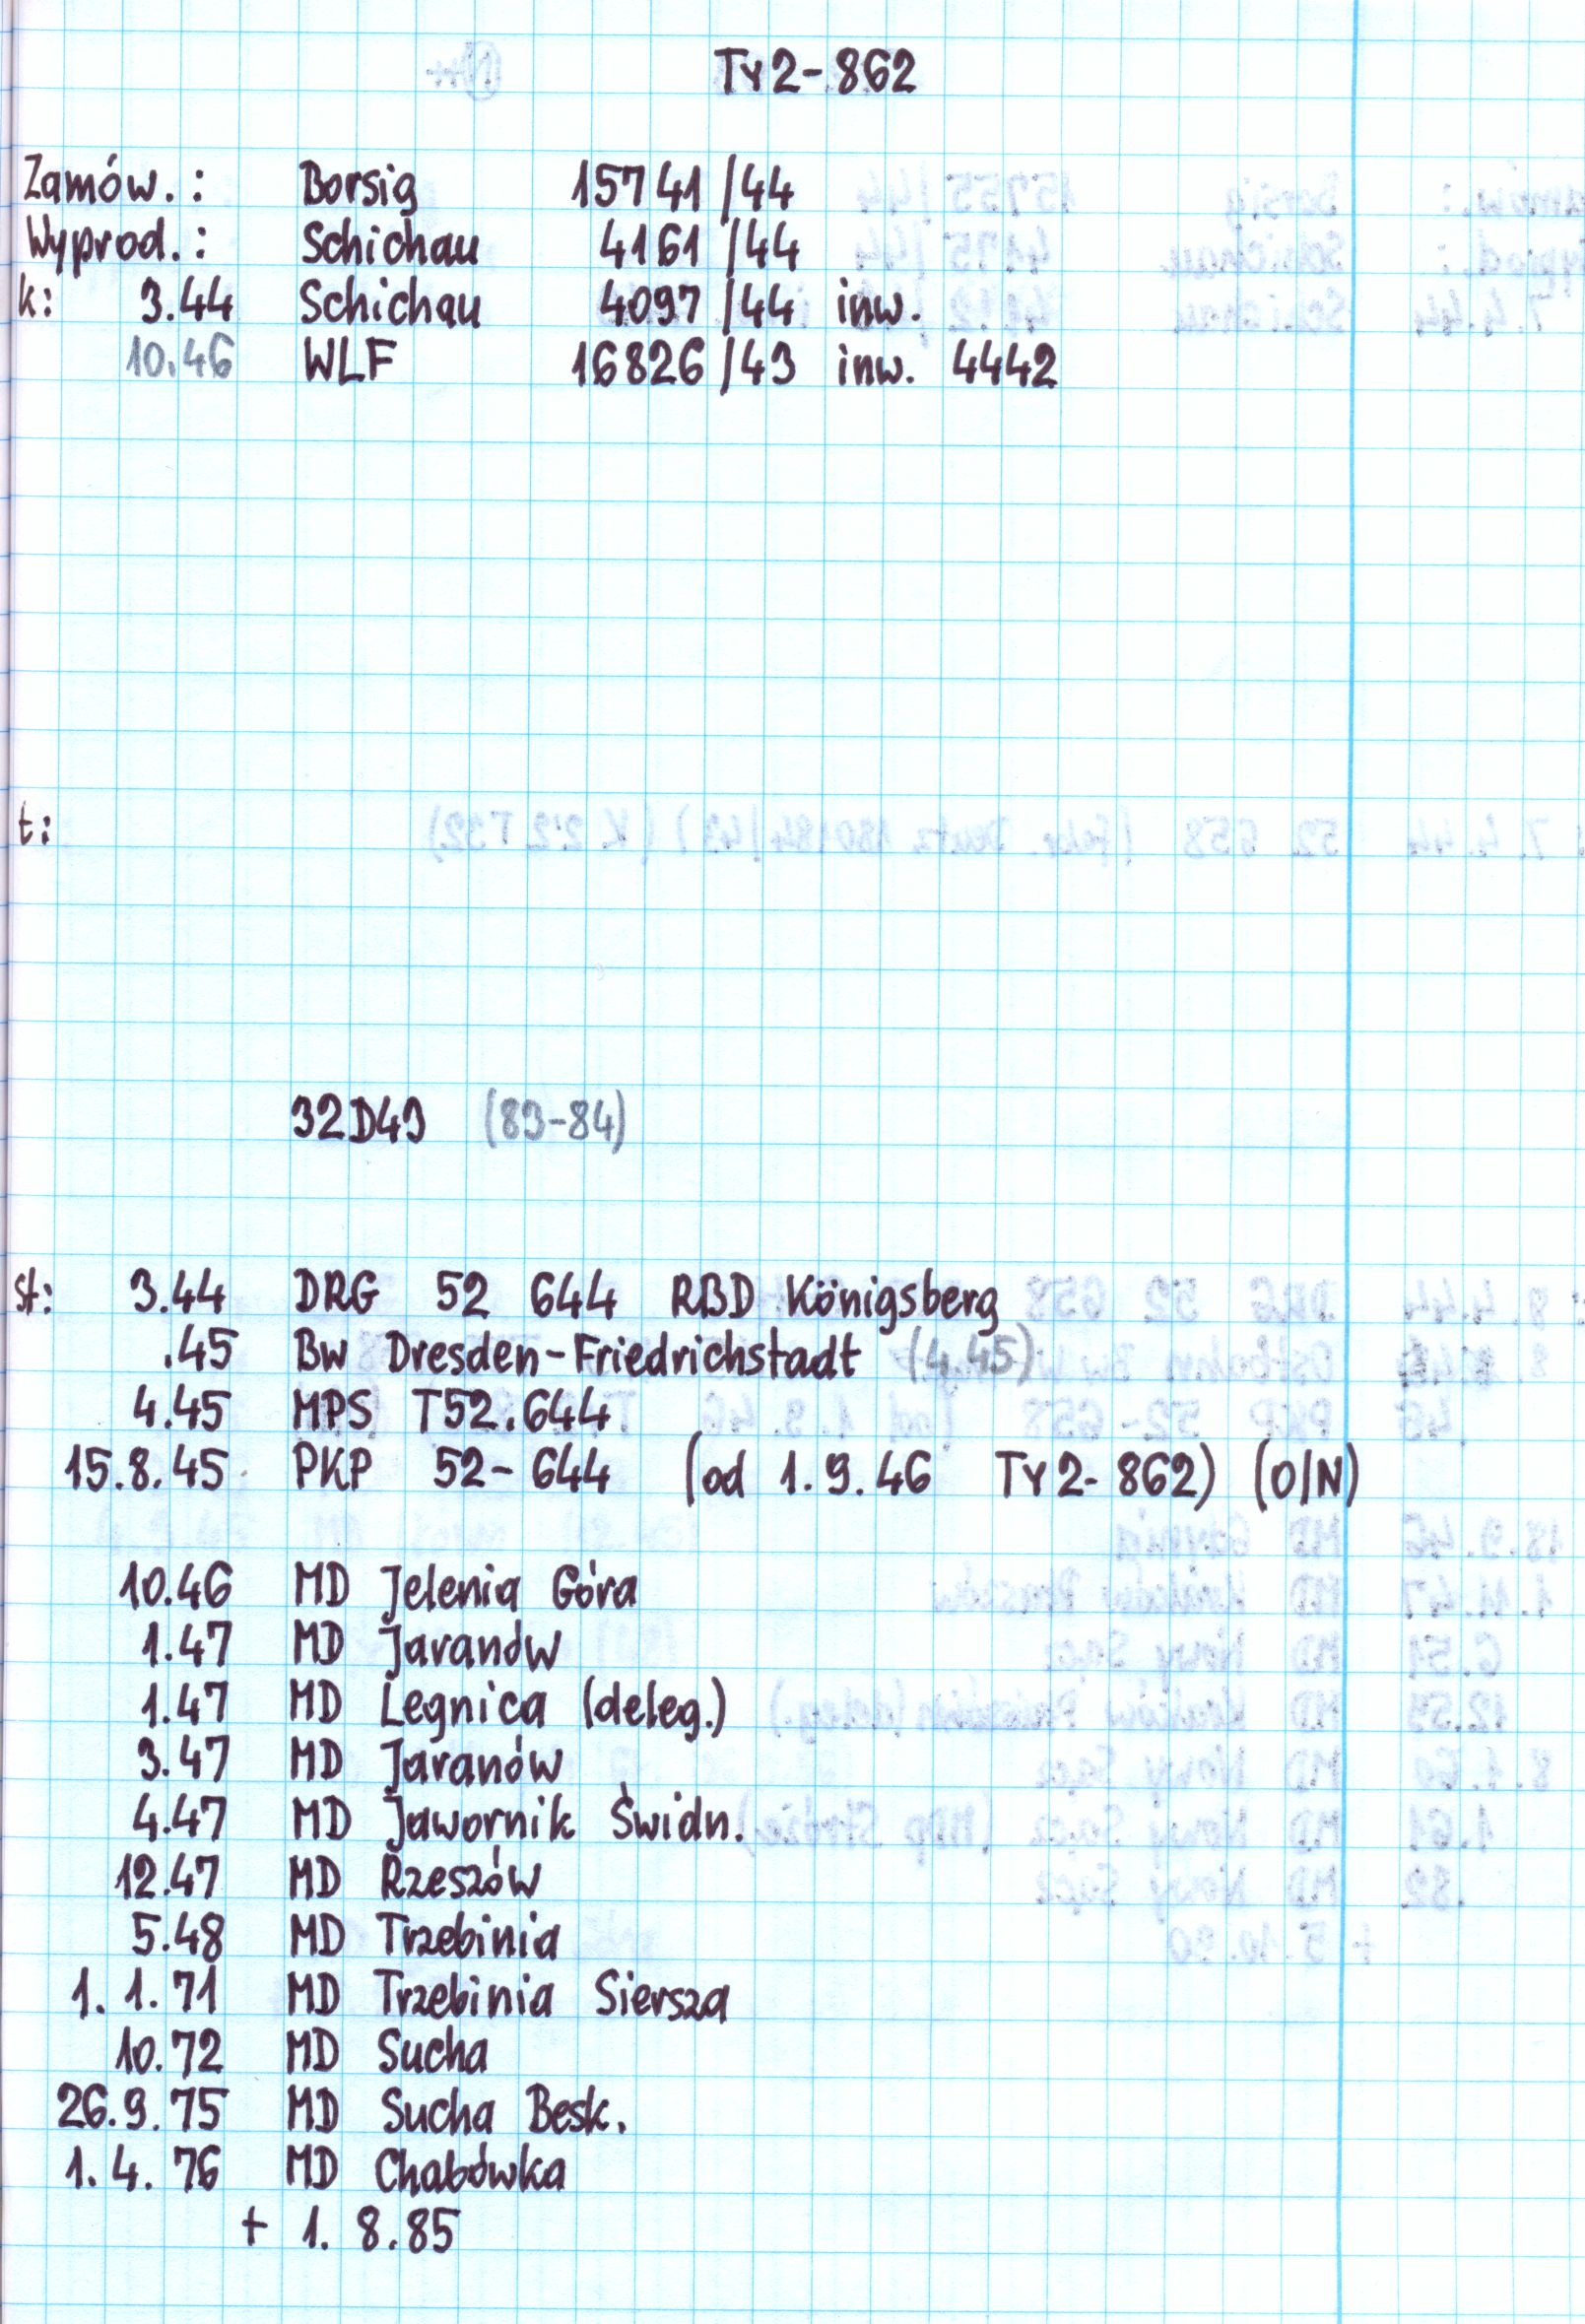 Ty2-862
Zamów.: Borsig 15741/44
Wyprod.: Schichau 4161/44
k: 3.44 Schichau 4097/44 inw.
10.46 WLF 16826/43 inw. 4442
t:
32D43 (83-84)
st: 3.44 DRG 52 644 RBD Königsberg
.45 Bw Dresden-Friedrichstadt (4.45)
4.45 MPS T52.644
15.8.45 PKP 52-644 (od 1.9.46 Ty2-862) (O/N)
10.46 MD Jelenia Góra
1.47 MD Jaranów
1.47 MD Legnica (deleg.)
3.47 MD Jaranów
4.47 MD Jawornik Świdn.
12.47 MD Rzeszów
5.48 MD Trzebinia
1.1.71 MD Trzebinia Siersza
10.72 MD Sucha
26.9.75 MD Sucha Besk.
1.4.76 MD Chabówka
+ 1.8.85